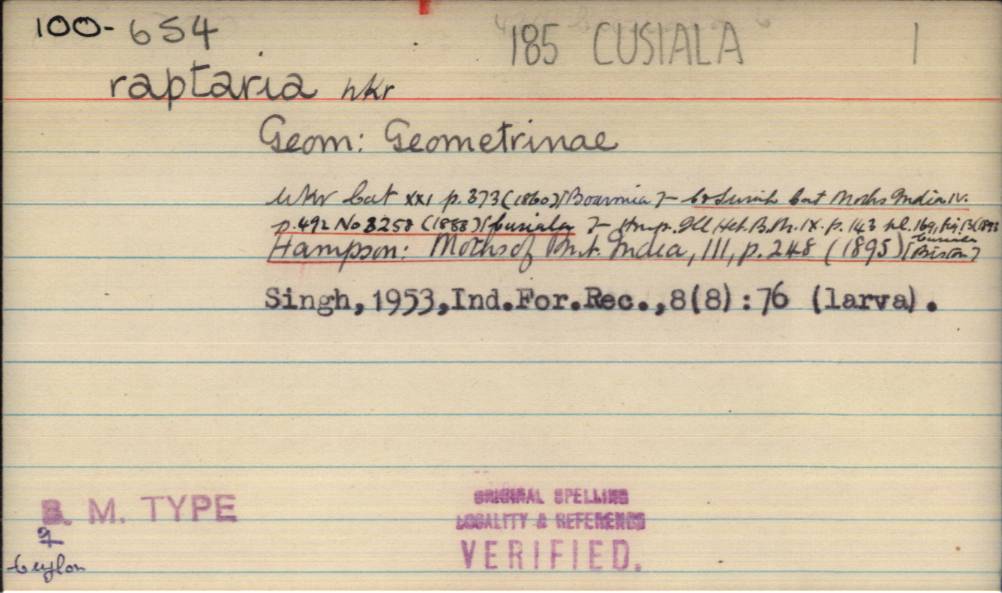 100-654 185 CUSIALA 1
raptaria Wkr
Geom: Geometrinae
Wkr Cat XXI p. 373 (1860) [Boarmia] - Cat Moths India IV.
p. 492 No 3258 (1888) [Cusiala] - Hmp. Ill. Het. B.M. IX. p. 143 pl. 169, fig.
Hampson: Moths of Brit. India, III, p. 248 (1895) [Cusiala
Singh, 1953, Ind.For.Rec., 8(8):76 (larva).
B. M. TYPE
♀
Ceylon
ORIGINAL SPELLING
LOCALITY & REFERENCE
VERIFIED.